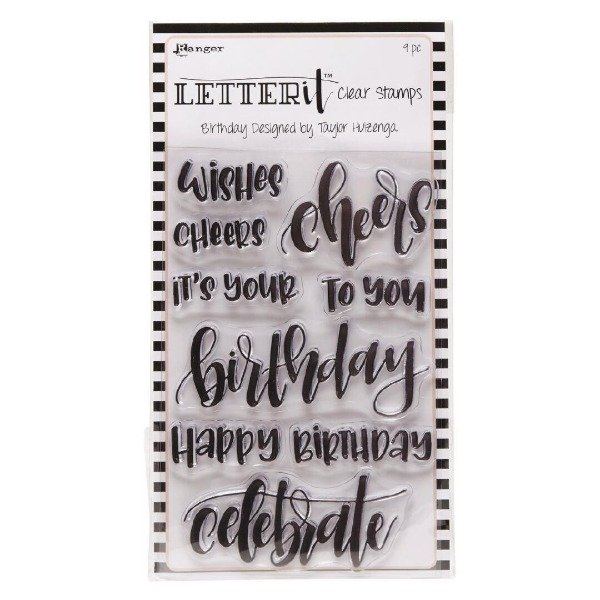 Ranger
9 pc
LETTERit™ Clear Stamps
Birthday Designed by Taylor Huizenga
WISHES
cheers
CHEERS
IT'S YOUR
TO YOU
birthday
HAPPY BIRTHDAY
celebrate